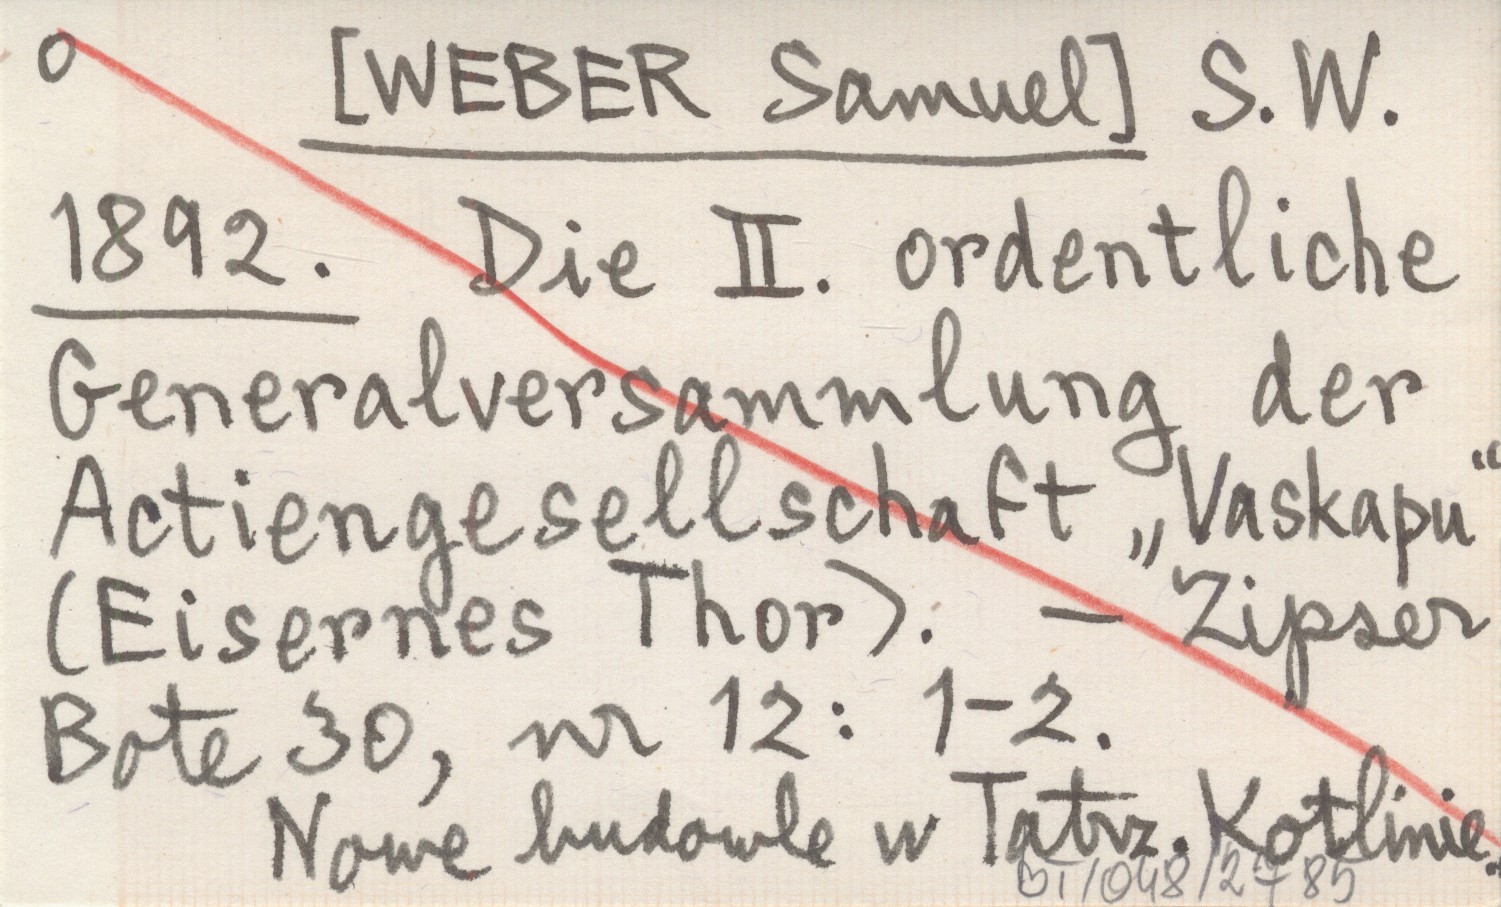 o [WEBER Samuel] S.W.
1892. Die II. ordentliche
Generalversammlung der
Actiengesellschaft „Vaskapu“
(Eisernes Thor). – Zipser
Bote 30, nr 12: 1-2.
Nowe budowle w Tatrz. Kotlinie.
BT/048/2785